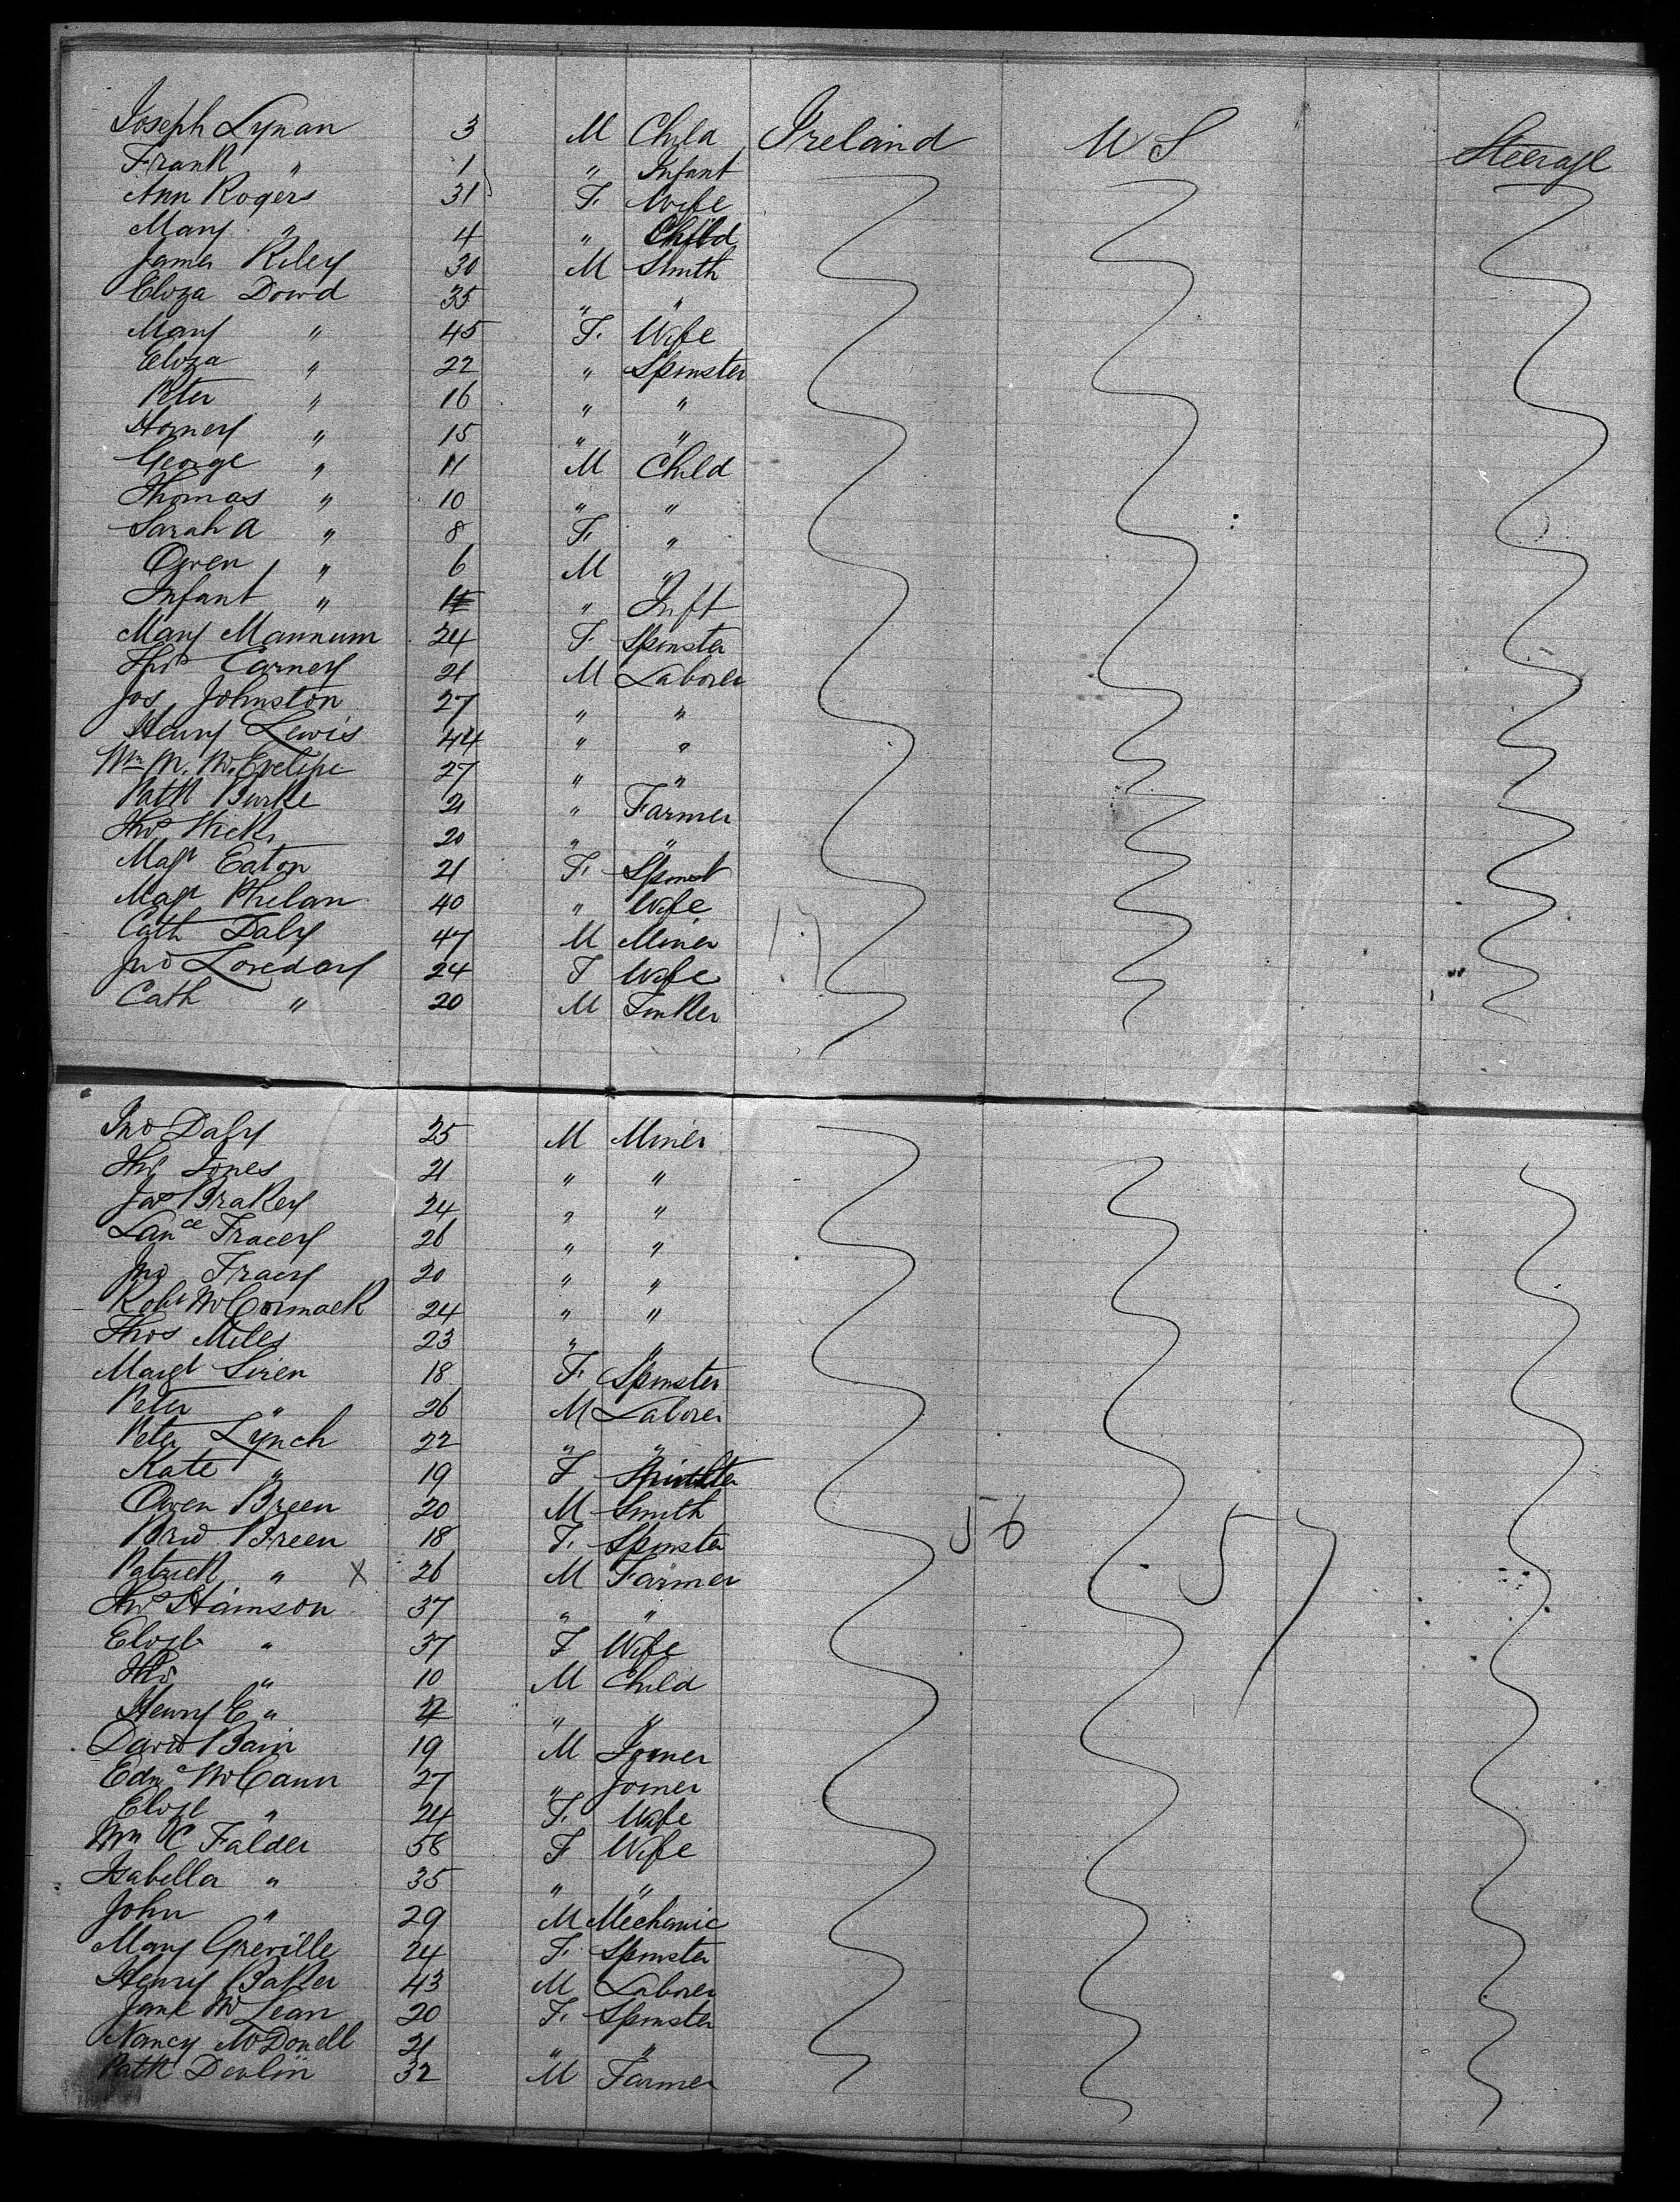 Joseph Lynan 3 M Child Ireland U S Steerage
Frank " 1 " Infant
Ann Rogers 31 F. Wife
Mary " 4 " Child
James Riley 30 M Smith
Eliza Dowd 35 " "
Mary " 45 F. Wife
Eliza " 22 " Spinster
Peter " 16 " "
" 15 " "
George " 11 M Child
Thomas " 10 " "
Sarah A " 8 F. "
Owen " 6 M "
Infant " " Inft
Mary Mannum 24 F. Spinster
Thos Carney 21 M Laborer
Jos Johnston 27 " "
Henry Lewis 44 " "
Wm 27 " "
Patk Burke 21 " Farmer
Thos Hicks 20 " "
Magt Eaton 21 F. Spinst
Magt Phelan 40 " Wife
Cath Daly 47 M Miner
Jno 24 F Wife
Cath " 20 M Tinker
Jno Daly 25 M Miner
Thos Jones 21 " "
Jas Brakey 24 " "
Lance Tracey 26 " "
Jno Tracy 20 " "
Robt McCormack 24 " "
Thos Miles 23 " "
Margt Siren 18 F. Spinster
Peter " 26 M Laborer
Peter Lynch 22 " "
Kate " 19 F Spinster
Owen Breen 20 M Smith
Brid Breen 18 F. Spinster
Patrick " X 26 M Farmer
Thos 37 " "
Elizb " 37 F Wife
Thos " 10 M Child
Henry E " " "
David Bain 19 M Joiner
Edmd McCann 27 " Joiner
Eliza " 24 F. Wife
Wm C Falder 58 F Wife
Isabella " 35 " "
John " 29 M Mechanic
Mary Greville 24 F. Spinster
Henry Baker 43 M Laborer
Jane McLean 20 F. Spinster
Nancy McDonell 21 " "
Patk Devlin 32 M Farmer
56
57